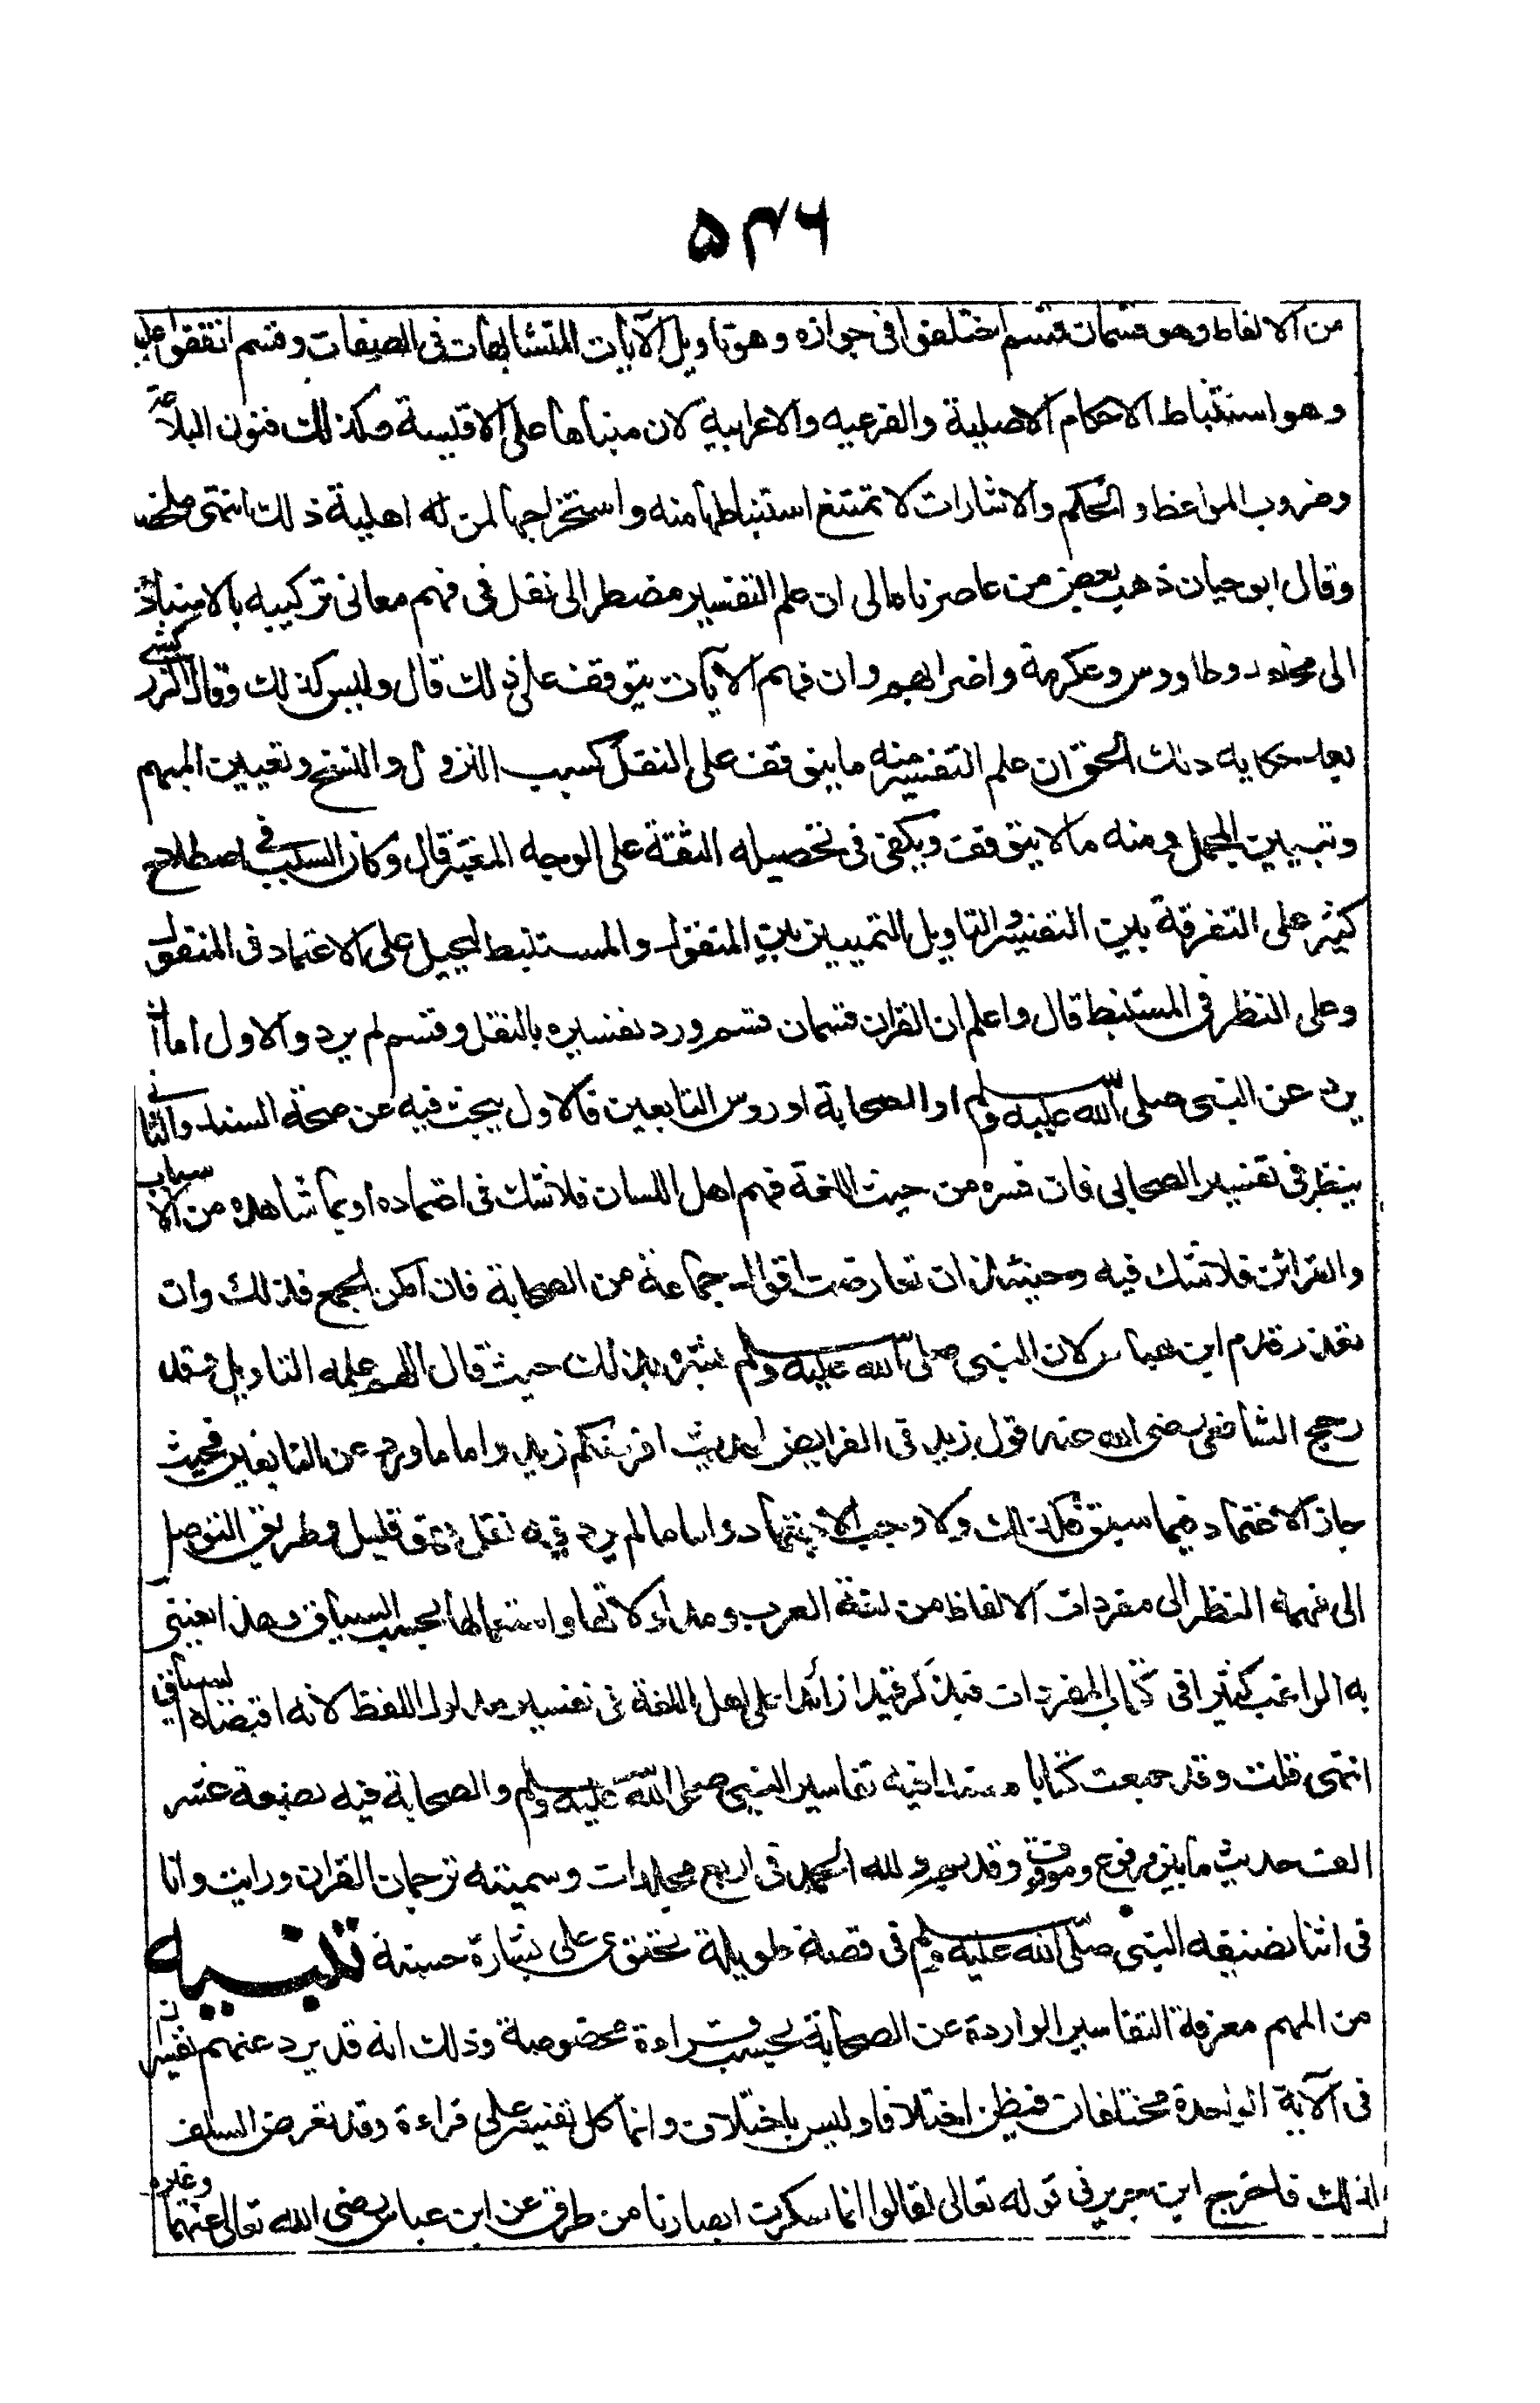 ۵۴۶
من الالفاظ وهو قسمان قسم اختلفوا فى جوازه وهو تاويل الآيات المتشابهات فى الصفات وقسم اتفقوا عليه
وهو استنباط الاحكام الاصلية والفرعيه والاعرابية لان مبناها على الاقيسة وكذلك فنون البلاغة
وضروب المواعظ والحكم والاشارات لا تمتنع استنباطها منه واستخراجها لمن له اهلية ذلك انتهى ملخصا
وقال ابو حيان ذهب بعض من عاصرناه الى ان علم التفسير مضطر الى نقل فى فهم معانى تركيبه بالاسناد
الى مجاهد وطاووس وعكرمة واضرابهم وان فهم الآيات يتوقف على ذلك قال وليس كذلك وقال الزركشى
بعد حكايه ذلك الحق ان علم التفسير منه ما يتوقف على النقل كسبب النزول والنسخ وتعيين المبهم
وتبيين المجمل ومنه ما لا يتوقف ويكفى فى تحصيله الثقة على الوجه المعتبر قال وكان السبب فى اصطلاح
كثير على التفرقة بين التفسير والتاويل التمييز بين المنقول والمستنبط ليحيل على الاعتماد فى المنقول
وعلى النظر فى المستنبط قال واعلم ان القران قسمان قسم ورد تفسيره بالنقل وقسم لم يرد والاول اما ان
يرد عن النبى صلى الله عليه وسلم او الصحابة او روس التابعين فالاول يبحث فيه عن صحة السند والثانى
ينظر فى تفسير الصحابى فان فسره من حيث اللغة فهم اهل اللسان فلا شك فى اعتماده او بما شاهده من الاسباب
والقرائن فلا شك فيه وحينئذ ان تعارضت اقوال جماعة من الصحابة فان امكن الجمع فذلك وان
تعذر قدم ابن عباس لان النبى صلى الله عليه وسلم بشره بذلك حيث قال اللهم علمه التاويل وقد
رجح الشافعى رضى الله عنه قول زيد فى الفرايض لحديث افرضكم زيد واما ما ورد عن التابعين فحيث
جاز الاعتماد فيما سبق فكذلك ولا وجب الاجتهاد واما ما لم يرد فيه نقل فهو قليل وطريق التوصل
الى فهمه النظر الى مفردات الالفاظ من لغة العرب ومدلولاتها واستعمالها بحسب السياق وهذا يعتنى
به الراغب كثيرا فى كتاب المفردات فيذكر قيدا زائدا على اهل اللغة فى تفسير مدلول اللفظ لانه اقتضاه السياق
انتهى قلت وقد جمعت كتابا مسندا فيه تفاسير النبى صلى الله عليه وسلم والصحابة فيه بضعة عشر
الف حديث ما بين مرفوع وموقوف وقد تم ولله الحمد فى اربع مجلدات وسميته ترجمان القران ورايت وانا
فى اثنا تصنيفه النبى صلى الله عليه وسلم فى قصة طويلة تحتوى على بشارة حسنة تنبيه
من المهم معرفة التفاسير الواردة عن الصحابة بحسب قراءة مخصوصة وذلك انه قد يرد عنهم تفسيران
فى الآية الواحدة مختلفان فيظن اختلافا وليس باختلاف وانما كل تفسير على قراءة وقد تعرض السلف
لذلك فاخرج ابن جرير فى قوله تعالى لقالوا انما سكرت ابصارنا من طرق عن ابن عباس رضى الله تعالى عنهما وغيره